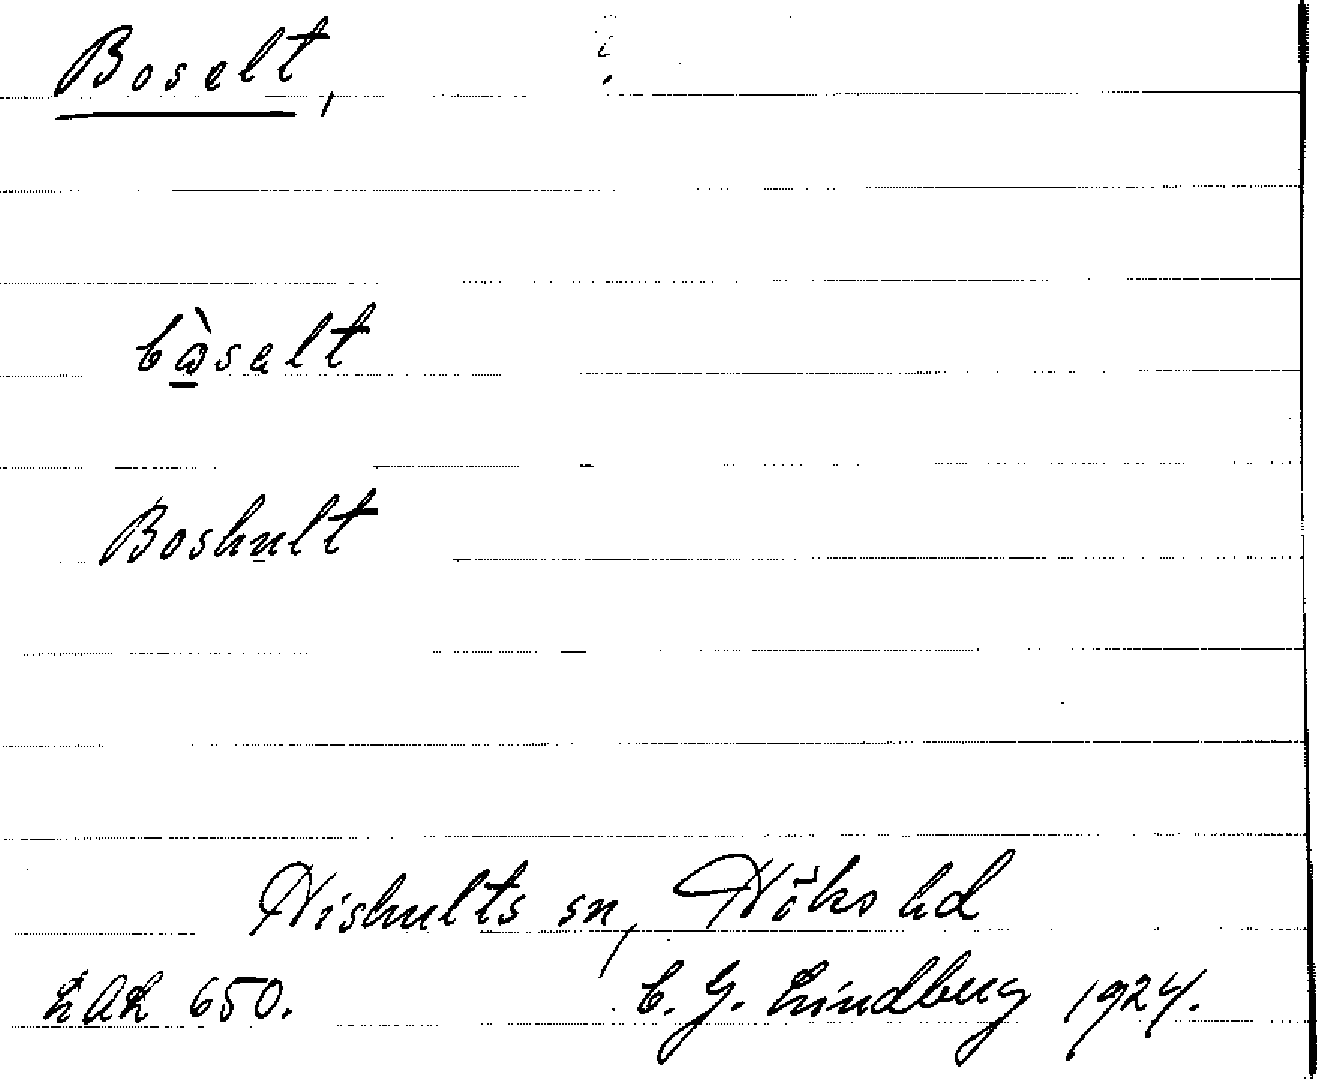 Boselt,
bòselt
Boshult
Hishults sn, Höks hd
LAL 650. C. G. Lindberg 1924.